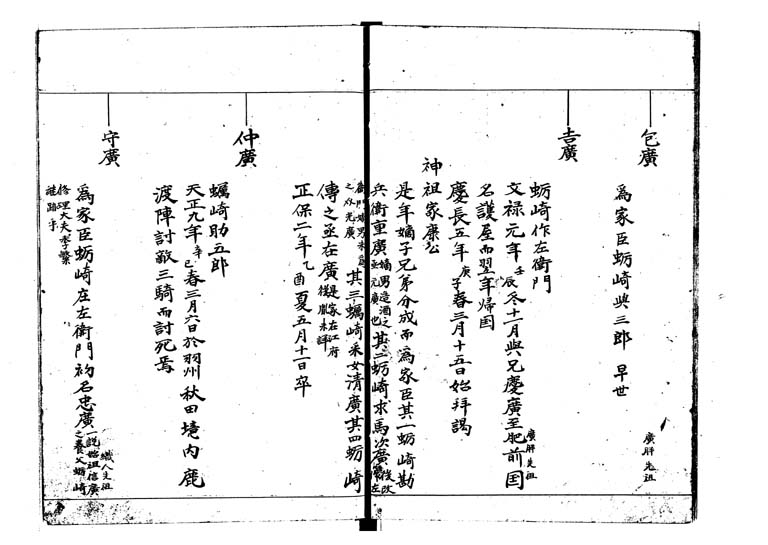 包廣
為家臣蛎崎與三郎 早世
廣胖先祖
吉廣
蛎崎作左衛門
文禄元年壬辰冬十一月與兄慶廣至肥前国
廣胖先祖
名護屋而翌年帰国
慶長五年庚子春三月十五日始拝謁
神祖家康公
是年嫡子兄弟分成而為家臣其一蛎崎勘
兵衛重廣嫡男造酒之丞元廣也其二蛎崎求馬次廣後改
之丞光廣其三蠣崎采女清廣其四蛎崎
傳之丞在廣是家在江府後胤未詳
正保二年乙酉夏五月十一日卒
仲廣
蠣崎助五郎
天正九年辛巳春三月六日於羽州秋田境内鹿
渡陣討敵三騎而討死焉
守廣
為家臣蛎崎庄左衛門初名忠廣一説始祖信廣之養父蛎崎
織人先祖
修理大夫季繁